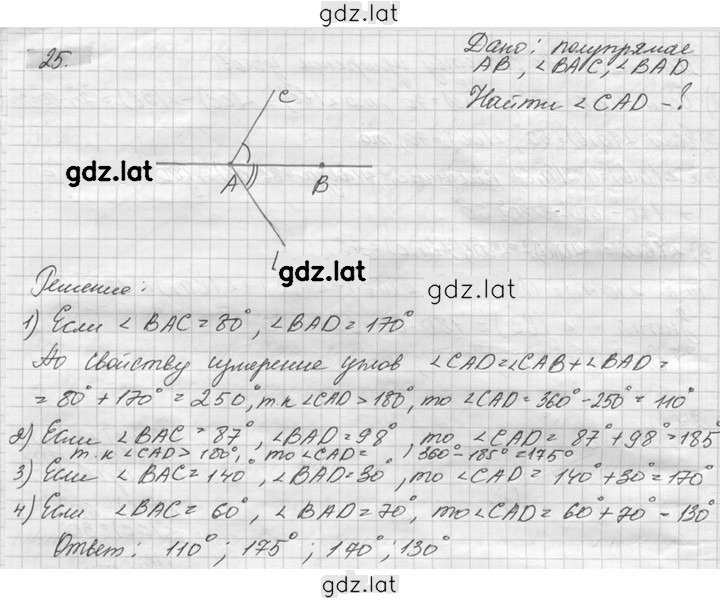 gdz.lat
25.
Дано: полупрямые
AB, ∠BAC, ∠BAD
Найти ∠CAD -?
C
gdz.lat
A
B
gdz.lat
gdz.lat
Решение:
1) Если ∠BAC = 80°, ∠BAD = 170°
По свойству измерение углов ∠CAD = ∠CAB + ∠BAD =
= 80° + 170° = 250°, т.к ∠CAD > 180°, то ∠CAD = 360° - 250° = 110°
2) Если ∠BAC = 87°, ∠BAD = 98°, то ∠CAD = 87° + 98° = 185°
т.к ∠CAD > 180°, то ∠CAD = 360° - 185° = 175°
3) Если ∠BAC = 140°, ∠BAD = 30°, то ∠CAD = 140° + 30° = 170°
4) Если ∠BAC = 60°, ∠BAD = 70°, то ∠CAD = 60° + 70° - 130°
Ответ: 110°; 175°; 170°; 130°
gdz.lat